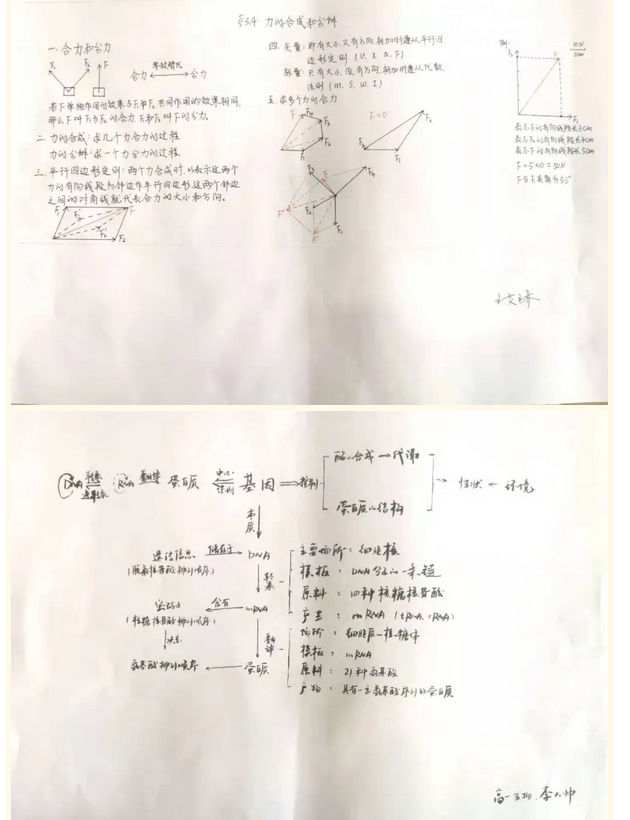 §3.4 力的合成和分解
一.合力和分力
F₁ F₂ F
合力 等效替代 分力
若F单独作用的效果与F₁和F₂共同作用的效果相同,
那么F叫F₁与F₂的合力,F₁和F₂叫F的分力。
二.力的合成:求几个力合力的过程
力的分解:求一个力分力的过程
三.平行四边形定则:两个力合成时,以表示这两个
力的有向线段为邻边作平行四边形,这两个邻边
之间的对角线就代表合力的大小和方向。
四.矢量:即有大小,又有方向,相加时遵从平行四
边形定则(v.x.a.F)
标量:只有大小,没有方向,相加时遵从代数
法则(m.s.w.I)
五.求多个力的合力
F=0
例:
10N
1cm
表示F₁的有向线段长3cm
表示F₂的有向线段长4cm
表示F的有向线段长5cm
F=5×10=50N
F与F₁夹角为53°
DNA 转录 RNA 翻译 蛋白质 中心法则 基因 控制
逆转录
酶的合成→代谢
蛋白质的结构
→性状←环境
本质
遗传信息 储存于 DNA
(脱氧核苷酸排列顺序)
转录
主要场所:细胞核
模板:DNA分子的一条链
原料:四种核糖核苷酸
产生:mRNA(tRNA、rRNA)
密码子 含有 mRNA
(核糖核苷酸排列顺序)
决定
翻译
场所:细胞质的核糖体
模板:mRNA
原料:21种氨基酸
产物:具有一定氨基酸序列的蛋白质
氨基酸排列顺序 ← 蛋白质
高一生物 李大帅